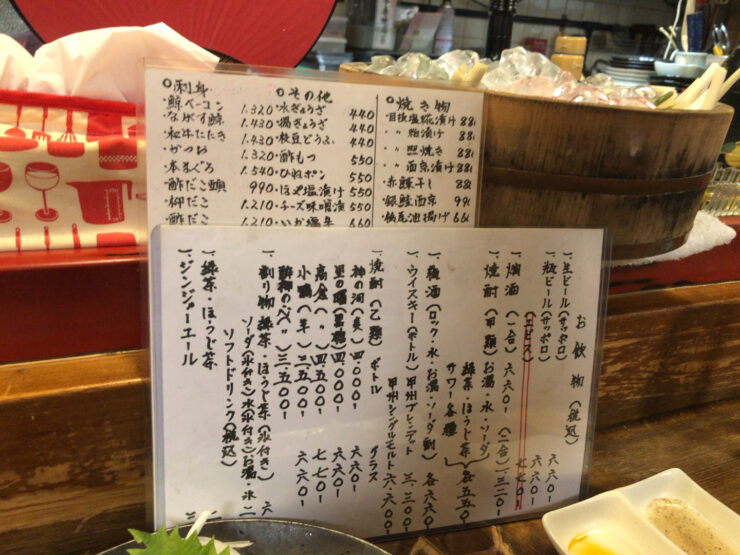 ○刺身
・鯨ベーコン 1.320
・ながす鯨 1.430
・和牛たたき 1.430
・かつお 1.320
・本まぐろ 1.540
・酢だこ頭 990
・柳だこ 1.210
・酢だこ 1.210
○その他
・水ぎょうざ 440
・揚ぎょうざ 440
・枝豆どうふ 440
・酢もつ 550
・ひねポン 550
・ほや塩漬け 550
・チーズ味噌漬 550
・いか塩辛 660
○焼き物
・目抜塩糀漬け 88
・〃粕漬け 88
・〃照焼き 88
・〃西京漬け 88
・赤鯨干し 88
・銀鮭西京 99
・栃尾油揚げ 66
お飲物(税込)
一、生ビール(サッポロ) 六六〇-
一、瓶ビール(サッポロ) 六六〇-
(エビス) 七七〇-
一、燗酒(一合)六六〇-(二合)一.三二〇-
一、焼酎(甲類)お湯・水・ソーダ
緑茶・ほうじ茶
サワー各種 各五五〇-
一、梅酒(ロック・水・お湯・ソーダ割)各六六〇-
一、ウイスキー(ボトル)甲州 三.三〇〇-
甲州シングルモルト 六.六〇〇-
一、焼酎(乙類)ボトル グラス
神の河(麦)四.〇〇〇- 六六〇-
四.〇〇〇- 六六〇-
高倉(〃)四.五〇〇- 七七〇-
小鶴(芋)三.五〇〇- 六六〇-
三.五〇〇-
一、割り物 緑茶・ほうじ茶(氷付き) 六
ソーダ(氷付き)水(氷付き)お湯・水 二
ソフトドリンク(税込)
一、緑茶・ほうじ茶 三
一、ジンジャーエール 三